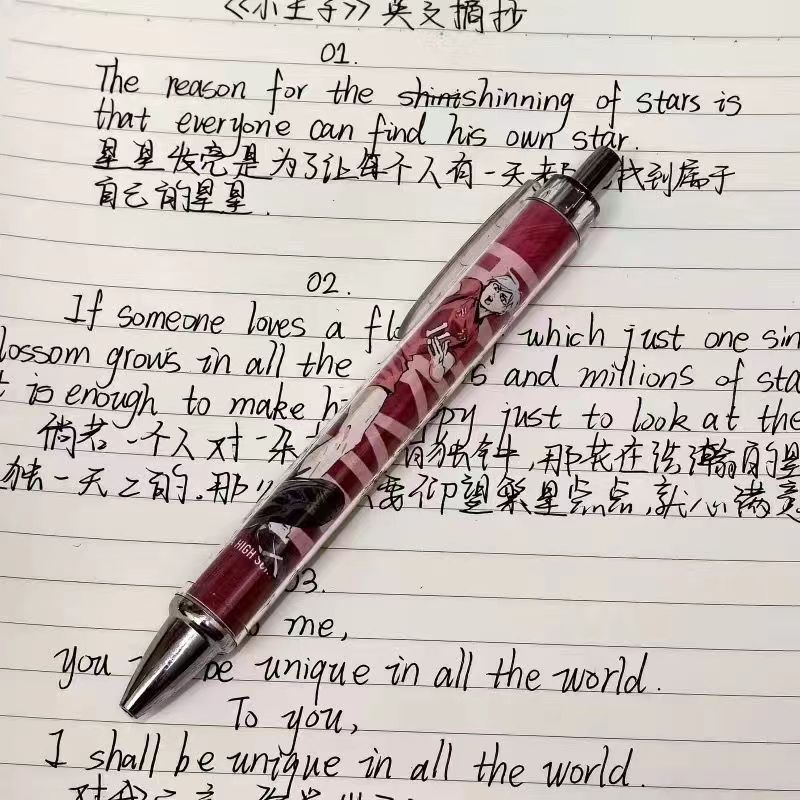 《小王子》英文摘抄
01.
The reason for the shinning of stars is
that everyone can find his own star.
星星发亮是为了让每个人有一天 找到属于
自己的星星.
02.
If someone loves a which just one sin
lossom grows in all the and millions of sta
is enough to make just to look at the
倘若一个人对一朵 独钟,那花在浩瀚的星
独一无二的.那 要仰望繁星点点,就心满意
03.
me,
you be unique in all the world.
To you,
I shall be unique in all the world.
HIGH